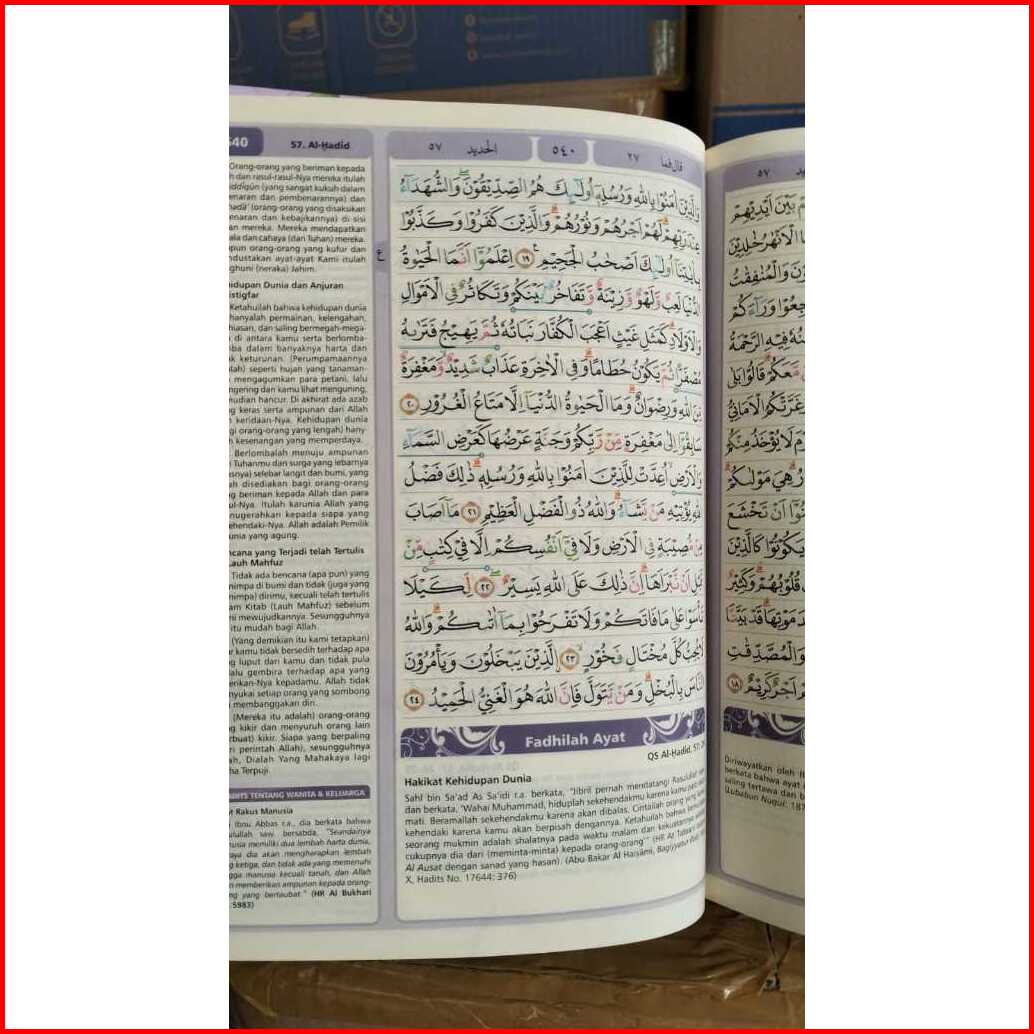 540
57. Al-Ḥadid
Orang-orang yang beriman kepada
h dan rasul-rasul-Nya mereka itulah
ddiqūn (yang sangat kukuh dalam
enaran dan pembenarannya) dan
hadā' (orang-orang yang disaksikan
enaran dan kebajikannya) di sisi
an mereka. Mereka mendapatkan
ala dan cahaya (dari Tuhan) mereka.
pun orang-orang yang kufur dan
ndustakan ayat-ayat Kami itulah
ghuni (neraka) Jahim.
idupan Dunia dan Anjuran
istigfar
Ketahuilah bahwa kehidupan dunia
hanyalah permainan, kelengahan,
hiasan, dan saling bermegah-mega-
di antara kamu serta berlomba-
ba dalam banyaknya harta dan
k keturunan. (Perumpamaannya
lah) seperti hujan yang tanaman-
mengagumkan para petani, lalu
ngering dan kamu lihat menguning,
mudian hancur. Di akhirat ada azab
g keras serta ampunan dari Allah
keridaan-Nya. Kehidupan dunia
gi orang-orang yang lengah) hany-
h kesenangan yang memperdaya.
Berlombalah menuju ampunan
Tuhanmu dan surga yang lebarnya
snya) selebar langit dan bumi, yang
h disediakan bagi orang-orang
g beriman kepada Allah dan para
ul-Nya. Itulah karunia Allah yang
nugerahkan kepada siapa yang
ehendaki-Nya. Allah adalah Pemilik
unia yang agung.
ncana yang Terjadi telah Tertulis
Lauh Mahfuz
Tidak ada bencana (apa pun) yang
nimpa di bumi dan tidak (juga yang
nimpa) dirimu, kecuali telah tertulis
am Kitab (Lauh Mahfuz) sebelum
ni mewujudkannya. Sesungguhnya
itu mudah bagi Allah.
(Yang demikian itu kami tetapkan)
r kamu tidak bersedih terhadap apa
g luput dari kamu dan tidak pula
lalu gembira terhadap apa yang
erikan-Nya kepadamu. Allah tidak
nyukai setiap orang yang sombong
membanggakan diri.
(Mereka itu adalah) orang-orang
g kikir dan menyuruh orang lain
rbuat) kikir. Siapa yang berpaling
ri perintah Allah), sesungguhnya
h, Dialah Yang Mahakaya lagi
ha Terpuji.
DITS TENTANG WANITA & KELUARGA
t Rakus Manusia
Ibnu Abbas r.a., dia berkata bahwa
ulullah saw. bersabda, "Seandainya
nusia memiliki dua lembah harta dunia,
aya dia akan mengharapkan lembah
g ketiga, dan tidak ada yang memenuhi
gga manusia kecuali tanah, dan Allah
n memberikan ampunan kepada orang-
ng yang bertaubat." (HR Al Bukhari
5983)
قال فما ٢٧
٥٤٠
الحديد ٥٧
ع
وَالَّذِيْنَ اٰمَنُوْا بِاللّٰهِ وَرُسُلِهٖٓ اُولٰۤىِٕكَ هُمُ الصِّدِّيْقُوْنَ وَالشُّهَدَاۤءُ
عِنْدَ رَبِّهِمْۗ لَهُمْ اَجْرُهُمْ وَنُوْرُهُمْۗ وَالَّذِيْنَ كَفَرُوْا وَكَذَّبُوْا
بِاٰيٰتِنَآ اُولٰۤىِٕكَ اَصْحٰبُ الْجَحِيْمِ ࣖ ١٩ اِعْلَمُوْٓا اَنَّمَا الْحَيٰوةُ
الدُّنْيَا لَعِبٌ وَّلَهْوٌ وَّزِيْنَةٌ وَّتَفَاخُرٌۢ بَيْنَكُمْ وَتَكَاثُرٌ فِى الْاَمْوَالِ
وَالْاَوْلَادِۗ كَمَثَلِ غَيْثٍ اَعْجَبَ الْكُفَّارَ نَبَاتُهٗ ثُمَّ يَهِيْجُ فَتَرٰىهُ
مُصْفَرًّا ثُمَّ يَكُوْنُ حُطَامًاۗ وَفِى الْاٰخِرَةِ عَذَابٌ شَدِيْدٌ وَّمَغْفِرَةٌ
مِّنَ اللّٰهِ وَرِضْوَانٌۗ وَمَا الْحَيٰوةُ الدُّنْيَآ اِلَّا مَتَاعُ الْغُرُوْرِ ٢٠
سَابِقُوْٓا اِلٰى مَغْفِرَةٍ مِّنْ رَّبِّكُمْ وَجَنَّةٍ عَرْضُهَا كَعَرْضِ السَّمَاۤءِ
وَالْاَرْضِۙ اُعِدَّتْ لِلَّذِيْنَ اٰمَنُوْا بِاللّٰهِ وَرُسُلِهٖۗ ذٰلِكَ فَضْلُ
اللّٰهِ يُؤْتِيْهِ مَنْ يَّشَاۤءُۗ وَاللّٰهُ ذُو الْفَضْلِ الْعَظِيْمِ ٢١ مَآ اَصَابَ
مِنْ مُّصِيْبَةٍ فِى الْاَرْضِ وَلَا فِيْٓ اَنْفُسِكُمْ اِلَّا فِيْ كِتٰبٍ مِّنْ
قَبْلِ اَنْ نَّبْرَاَهَاۗ اِنَّ ذٰلِكَ عَلَى اللّٰهِ يَسِيْرٌۖ ٢٢ لِّكَيْلَا
تَأْسَوْا عَلٰى مَا فَاتَكُمْ وَلَا تَفْرَحُوْا بِمَآ اٰتٰىكُمْۗ وَاللّٰهُ
لَا يُحِبُّ كُلَّ مُخْتَالٍ فَخُوْرٍۙ ٢٣ الَّذِيْنَ يَبْخَلُوْنَ وَيَأْمُرُوْنَ
النَّاسَ بِالْبُخْلِۗ وَمَنْ يَّتَوَلَّ فَاِنَّ اللّٰهَ هُوَ الْغَنِيُّ الْحَمِيْدُ ٢٤
Fadhilah Ayat
QS Al-Ḥadid, 57: 2
Hakikat Kehidupan Dunia
Sahl bin Sa'ad As Sa'idi r.a. berkata, "Jibril pernah mendatangi Rasulullah
dan berkata, 'Wahai Muhammad, hiduplah sekehendakmu karena kamu pasti akan
mati. Beramallah sekehendakmu karena akan dibalas. Cintailah orang yang kamu
kehendaki karena kamu akan berpisah dengannya. Ketahuilah bahwa kemuliaan
seorang mukmin adalah shalatnya pada waktu malam dan kekuatannya adalah
cukupnya dia dari (meminta-minta) kepada orang-orang'" (HR At Tabrani dalam
Al Ausat dengan sanad yang hasan). (Abu Bakar Al Haiṡami, Bagiyyatur
X, Hadits No. 17644: 376)
٥٧
بَيْنَ اَيْدِيْهِمْ
الْاَنْهٰرُ خٰلِدِيْنَ
وَالْمُنٰفِقٰتُ
ارْجِعُوْا وَرَاۤءَكُمْ
فِيْهِ الرَّحْمَةُ
مَّعَكُمْۗ قَالُوْا بَلٰى
وَغَرَّتْكُمُ الْاَمَانِيُّ
لَا يُؤْخَذُ مِنْكُمْ
هِيَ مَوْلٰىكُمْۗ
اَنْ تَخْشَعَ
يَكُوْنُوْا كَالَّذِيْنَ
قُلُوْبُهُمْۗ وَكَثِيْرٌ
مَوْتِهَاۗ قَدْ بَيَّنَّا
وَالْمُصَّدِّقٰتِ
اَجْرٌ كَرِيْمٌ ١٨
Diriwayatkan oleh
berkata bahwa ayat
saling tertawa dan
(Lubabun Nuqul: 187